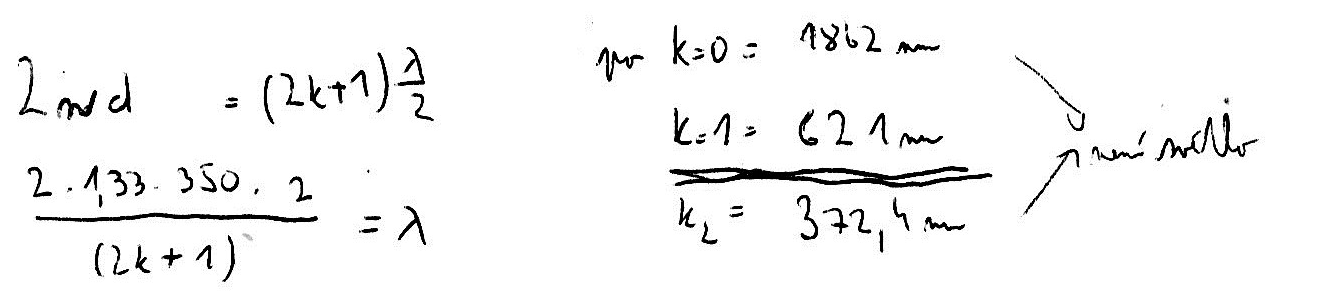 2nd = (2k+1) λ/2
2 . 1,33 . 350 . 2 / (2k+1) = λ
pro k=0 = 1862 nm
k=1 = 621 nm
k₂ = 372,4 nm
není světlo